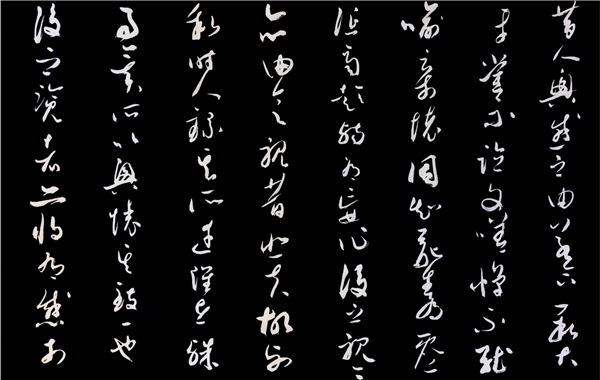 昔人興感之由若合一契
未嘗不臨文嗟悼不能
喻之於懷固知一死生為虛
誕齊彭殤為妄作後之視今
亦由今之視昔悲夫故列
敘時人錄其所述雖世殊
事異所以興懷其致一也
後之覽者亦將有感於